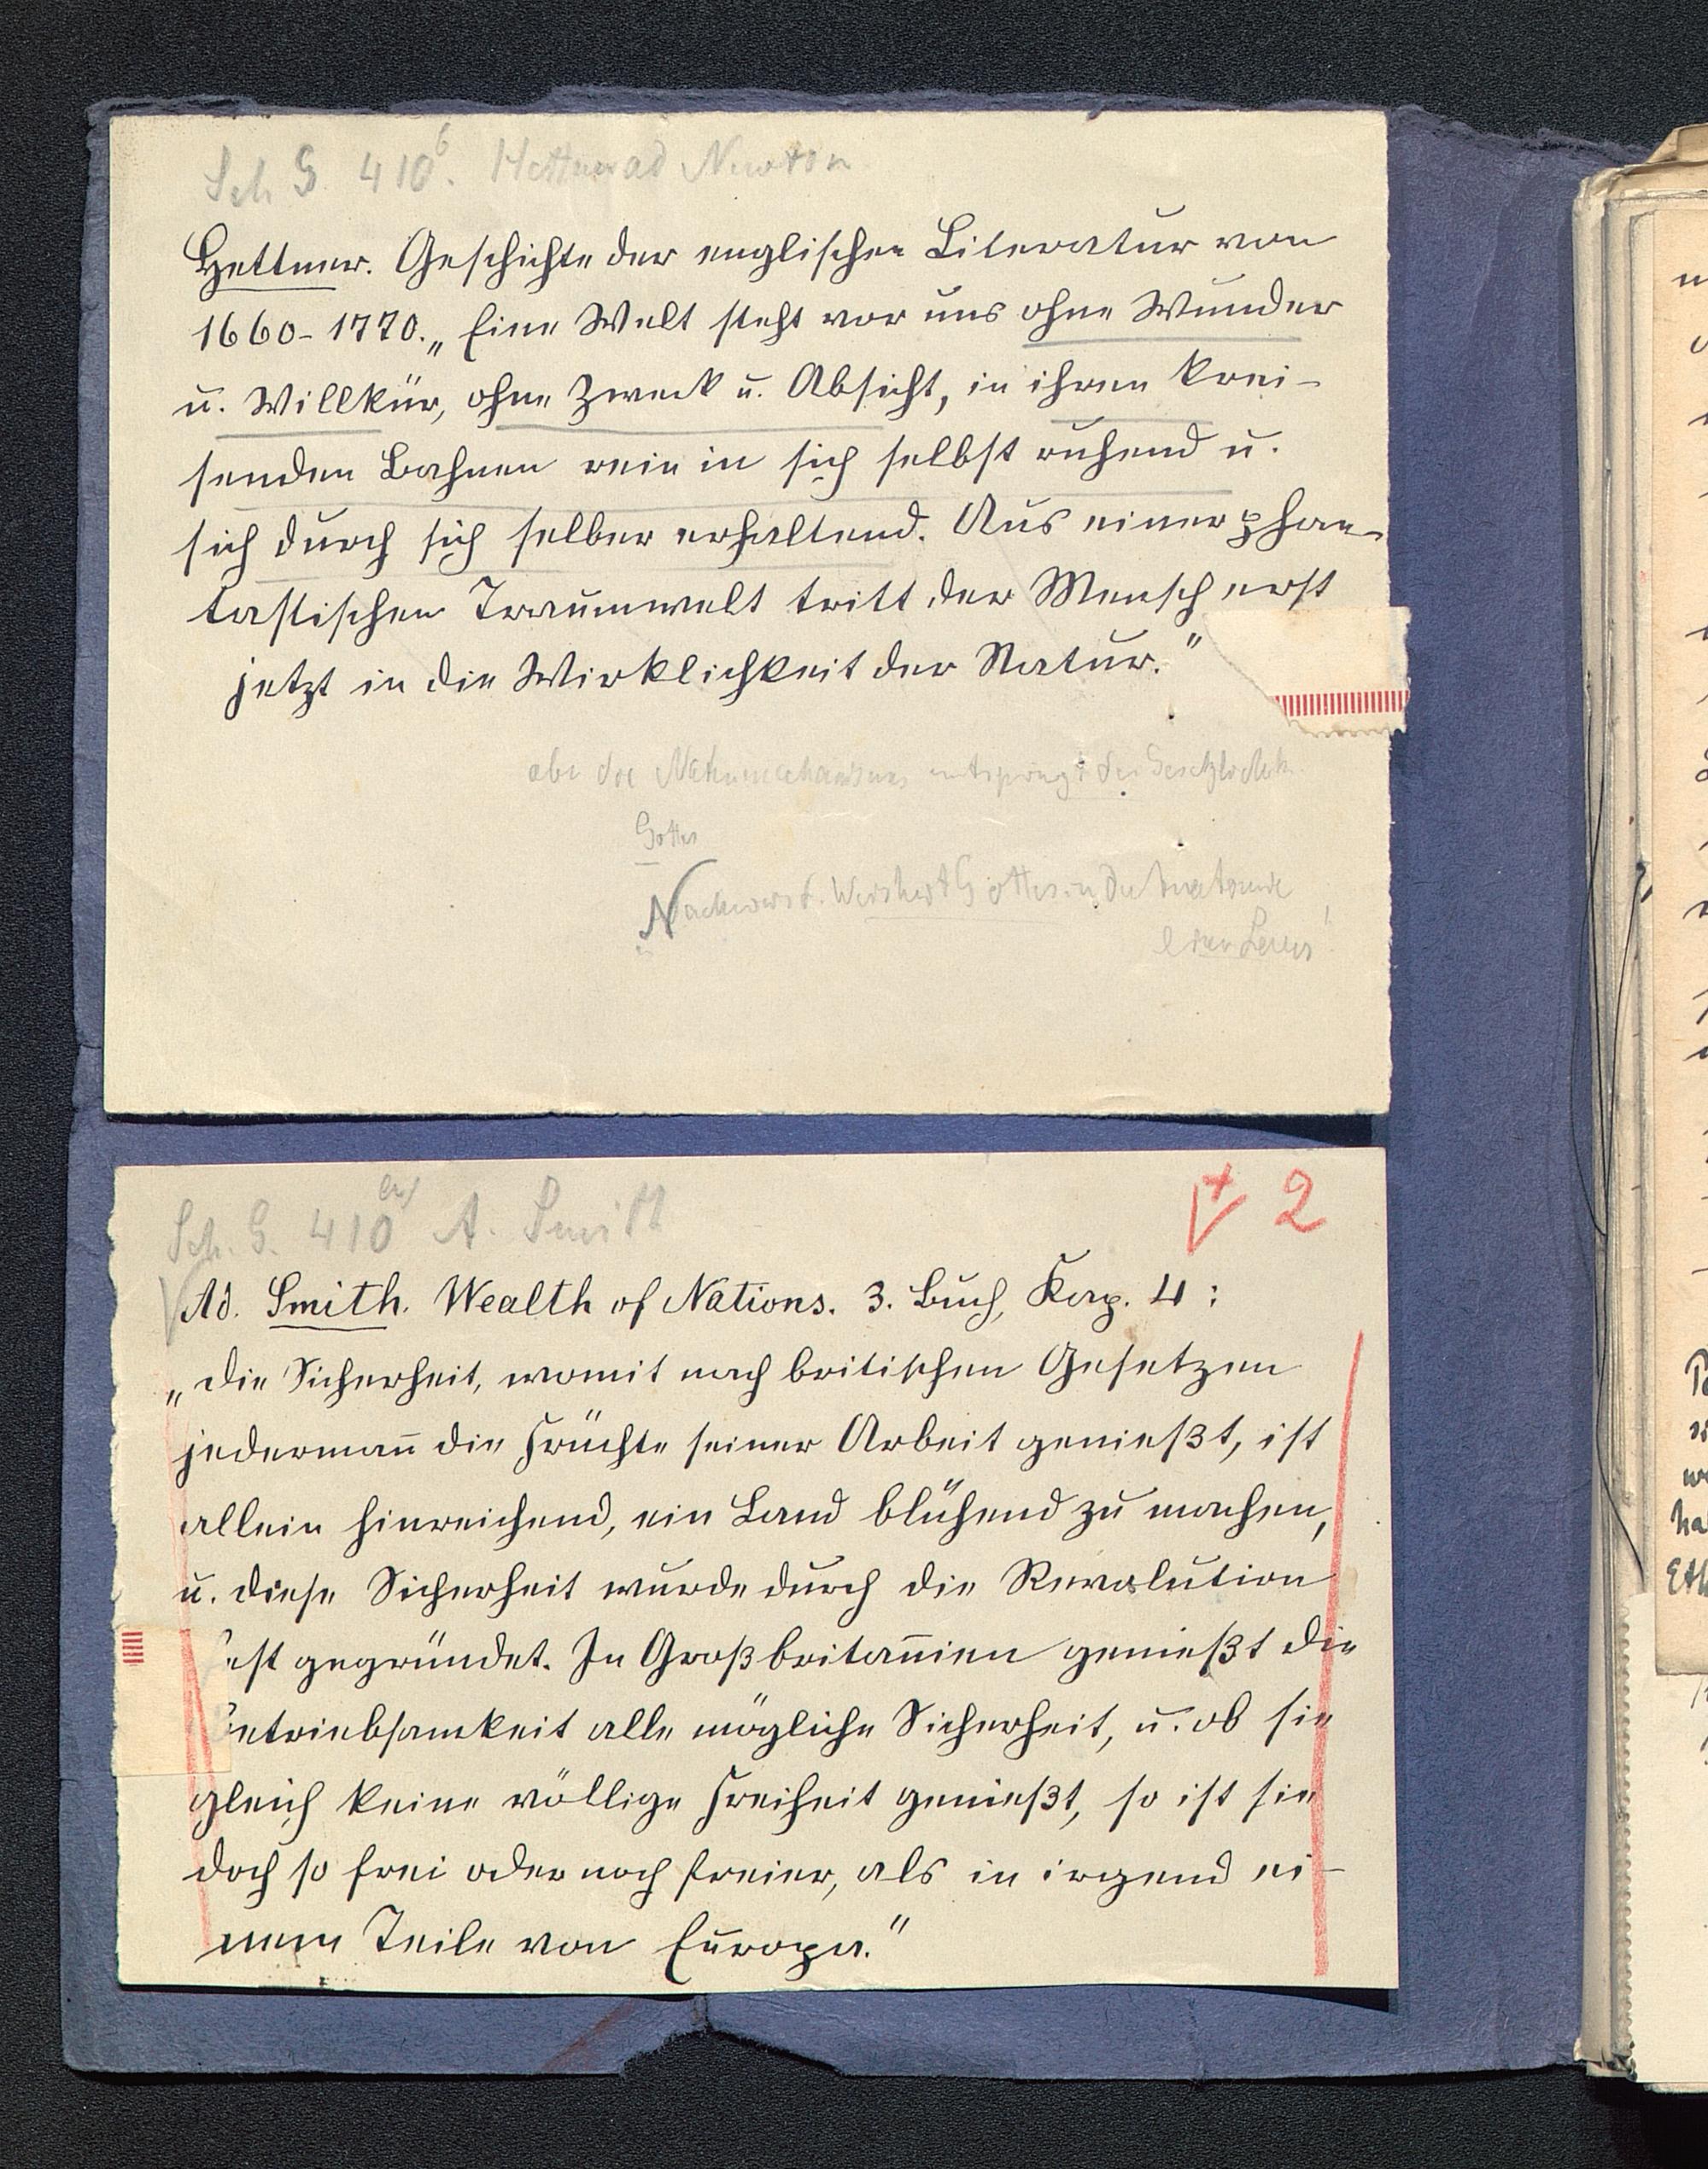 Sch. G. 410⁶. Hettner ad Newton
Hettner. Geschichte der englischen Literatur von
1660-1770. „Eine Welt steht vor uns ohne Wunder
u. Willkür, ohne Zweck u. Absicht, in ihren krei-
senden Bahnen rein in sich selbst ruhend u.
sich durch sich selber erhaltend. Aus einer phan-
tastischen Traumwelt tritt der Mensch erst
jetzt in die Wirklichkeit der Natur."
aber der Naturmechanismus entspringt der
Gottes
Weisheit Gottes
Sch. G. 410 A. Smith
+ 2
Ad. Smith. Wealth of Nations. 3. Buch, Kap. 4:
„Die Sicherheit, womit nach britischen Gesetzen
jedermañ die Früchte seiner Arbeit genießt, ist
allein hinreichend, ein Land blühend zu machen,
u. diese Sicherheit wurde durch die Revolution
fest gegründet. In Großbritañien genießt die
Betriebsamkeit alle mögliche Sicherheit, u. ob sie
gleich keine völlige Freiheit genießt, so ist sie
doch so frei oder noch freier, als in irgend ei-
nem Teile von Europa."